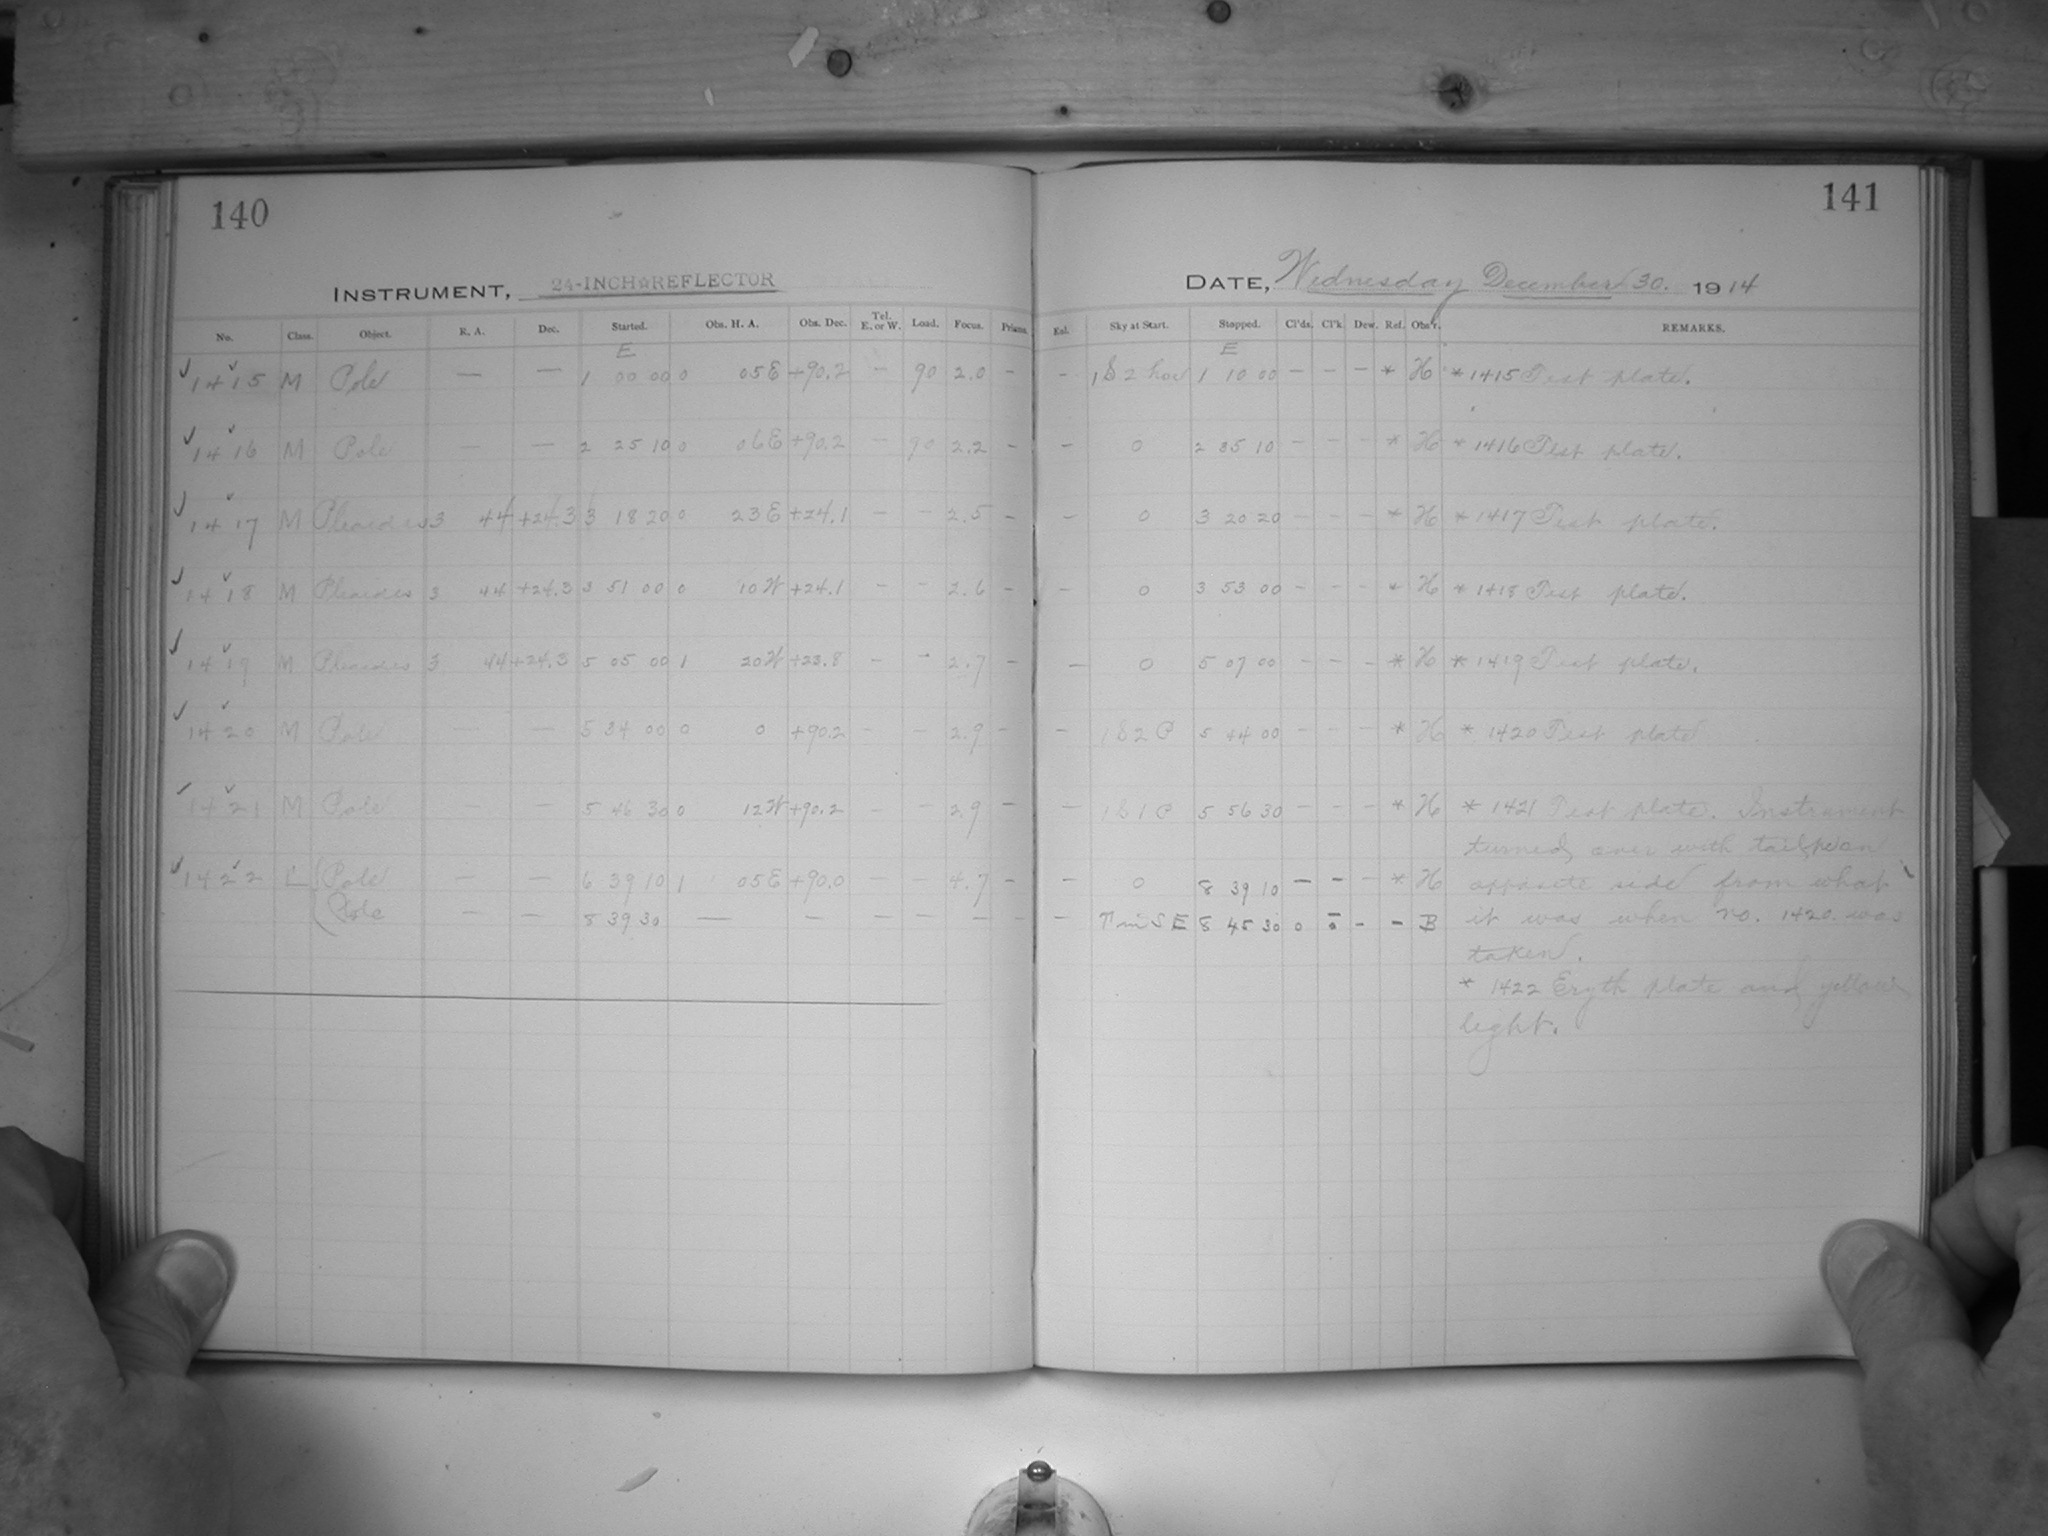 140
INSTRUMENT, 24-INCH REFLECTOR
No. Class. Object. R. A. Dec. Started. Obs. H. A. Obs. Dec. Tel. E. or W. Load. Focus. Prisms.
E
1415 M Pole — — 1 00 00 0 05E +90.2 - 90 2.0 -
1416 M Pole — — 2 25 10 0 06E +90.2 - 90 2.2 -
1417 M Pleiades 3 44 +24.3 3 18 20 0 23E +24.1 - - 2.5 -
1418 M Pleiades 3 44 +24.3 3 51 00 0 10W +24.1 - - 2.6 -
1419 M Pleiades 3 44 +24.3 5 05 00 1 20W +23.8 - - 2.7 -
1420 M Pole — — 5 34 00 0 0 +90.2 - - 2.9 -
1421 M Pole — — 5 46 30 0 12W +90.2 - - 2.9 -
1422 L Pole — — 6 39 10 1 05E +90.0 - - 4.7 -
Pole — — 8 39 30 — — - - - -
141
DATE, Wednesday December 30. 1914
Exl. Sky at Start. Stopped. Cl'ds. Cl'k. Dew. Ref. Obs'r. REMARKS.
E
- 1S2 hov 1 10 00 - - - * H * 1415 Test plate.
- 0 2 35 10 - - - * H * 1416 Test plate.
- 0 3 20 20 - - - * H * 1417 Test plate.
- 0 3 53 00 - - - * H * 1418 Test plate.
- 0 5 07 00 - - - * H * 1419 Test plate.
- 1S2 P 5 44 00 - - - * H * 1420 Test plate
- 1S1 P 5 56 30 - - - * H * 1421 Test plate. Instrument
turned over with
- 0 8 39 10 - - - * H opposite side from what
- S E 8 45 30 0 - - B it was when no. 1420. was
taken.
* 1422 Eryth plate and yellow
light.